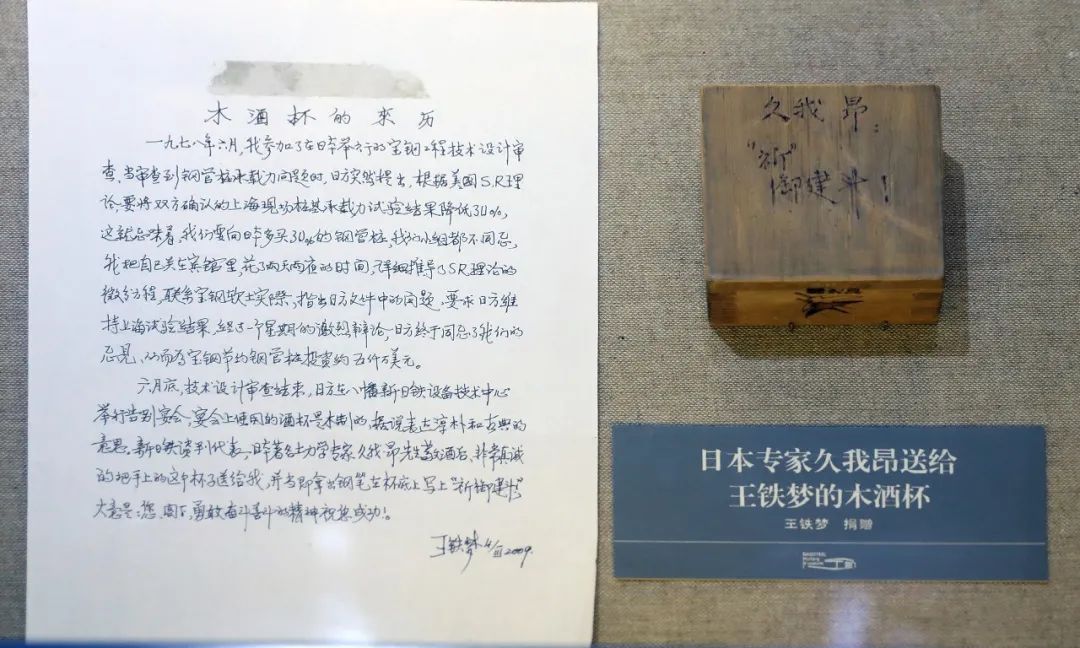 木酒杯的来历
一九七八年六月,我参加了在日本举行的宝钢工程技术设计审
查,当审查到钢管桩承载力问题时,日方突然提出,根据美国S.R理
论,要将双方确认的上海现场桩基承载力试验结果降低30%,
这就意味着,我们要向日本多买30%的钢管桩,我们小组都不同意,
我把自己关在宾馆里花了两天两夜的时间,详细推导了SR理论的
微分方程,联系宝钢软土实际,指出日方文件中的问题,要求日方维
持上海试验结果,经过一个星期的激烈辩论,日方终于同意了我们的
意见,从而为宝钢节约钢管桩投资约五仟万美元。
六月底,技术设计审查结束,日方在八幡新日铁设备技术中心
举行告别宴会,宴会上使用的酒杯是木制的,据说表达淳朴和古典的
意思。新日铁谈判代表,日本著名土力学专家久我昂先生敬酒后,非常真诚
的把手上的这个杯子送给我,并当即拿出钢笔在杯底上写上"祈御建斗"
大意是:您,阁下,勇敢奋斗善斗的精神祝您成功!。
王铁梦 4/Ⅲ 2009.
久我 昂:
"祈"
御建斗!
日本专家久我昂送给
王铁梦的木酒杯
王铁梦 捐赠